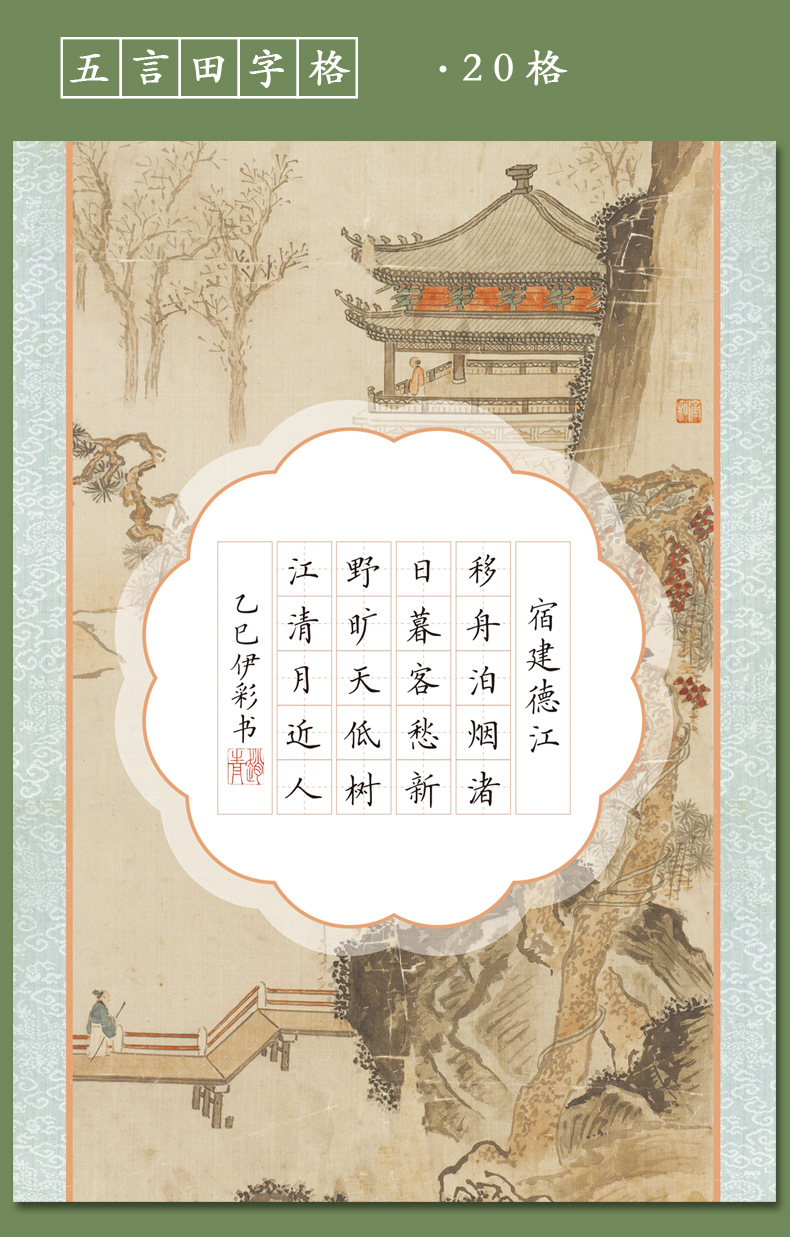 五言田字格
·20格
宿建德江
移舟泊烟渚
日暮客愁新
野旷天低树
江清月近人
乙巳伊彩书